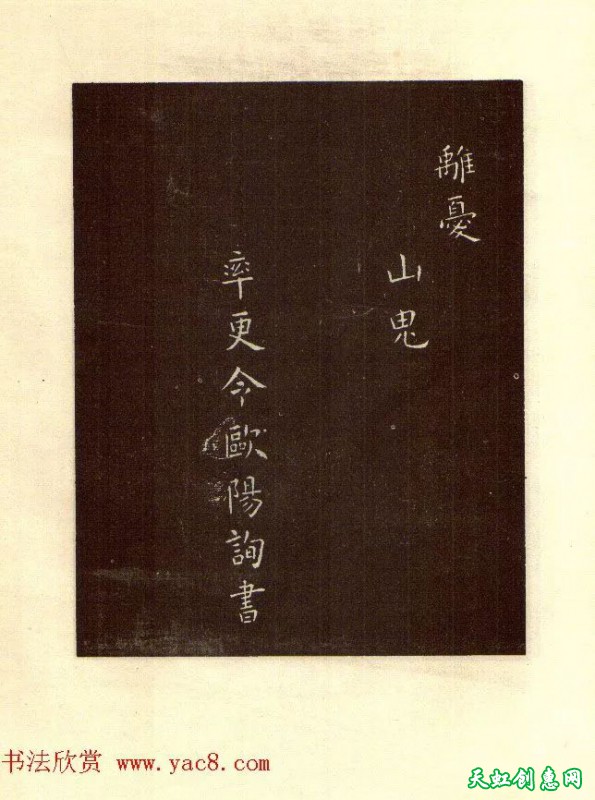 離憂
山鬼
率更令歐陽詢書
书法欣赏 www.yac8.com
天虹创惠网